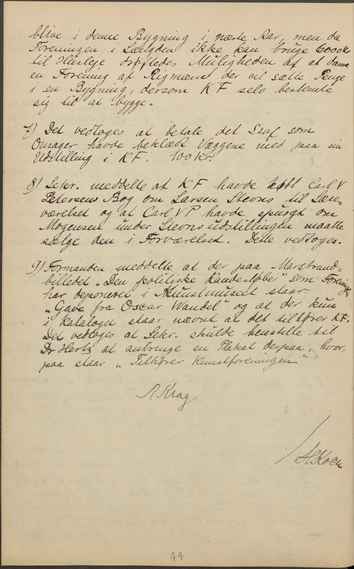 blive i denne Bygning i næste Aar, men da
Foreningen i Længden ikke kan bruge
til slutlige Muligheden af at danne
en Forening af Rigmænd der vil sætte Penge
i en Bygning, dersom K F selv bestemte
sig til at bygge.
7) Det vedtoges at betale det Stof som
havde beklædt Væggene med paa sin
Udstilling i K F. 100 kr.
8) Sekr. meddelte at K F havde købt Carl V
Petersens Bog om Larsen Stevns til
værelset og at Carl V P havde spurgt om
Mogensen under Stevnsudstillingen maatte
sælge den i Forværelset. Dette vedtoges.
9) Formanden meddelte at der paa Marstrand-
billedet "Den politiske Kandestøber" som Foreningen
har deponeret i Kunstmuseet staar
"Gave fra Oscar Wandel" og at der kun
i Kataloget staar nævnt at det tilhører K F.
Det vedtoges at Sekr. skulde henstille til
Dr Hertz at anbringe en Plakat derpaa, hvor-
paa staar "Tilhører Kunstforeningen"
Krag
44